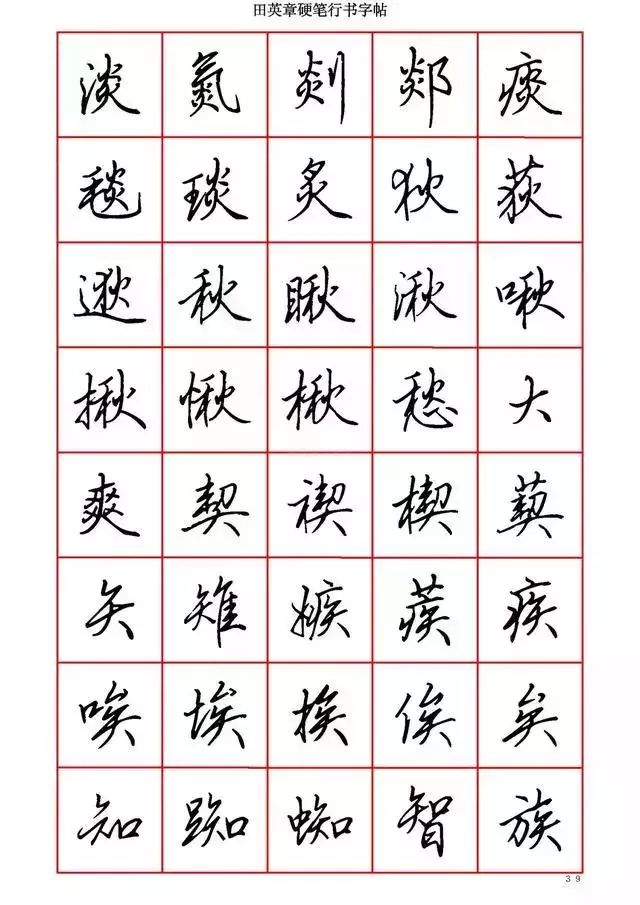 田英章硬笔行书字帖
淡氮剡郯痰
毯琰炙狄荻
逖秋瞅湫啾
揪愀楸愁大
爽契禊楔葜
矢雉嫉蒺疾
唉埃挨俟矣
知踟蜘智族
39